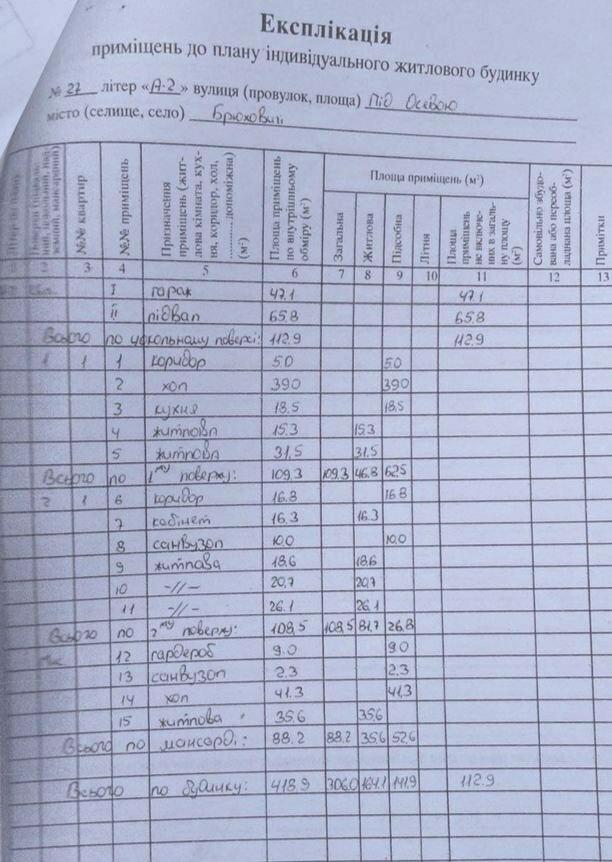 Експлікація
приміщень до плану індивідуального житлового будинку
№ 27 літер «А-2» вулиця (провулок, площа) Під Осевою
місто (селище, село) Брюховичі
№№ квартир
№№ приміщень
Призначення приміщень (житлова кімната, кухня, коридор, хол, ......... допоміжна) (м²)
Площа приміщень по внутрішньому обміру (м²)
Площа приміщень (м²)
Загальна
Житлова
Підсобна
Літня
Площа приміщень не включених в загальну площу (м²)
Самовільно збудована або переобладнана площа (м²)
Примітки
3 4 5 6 7 8 9 10 11 12 13
I гараж 47.1 47.1
II підвал 65.8 65.8
Всього по цокольному поверхі: 112.9 112.9
1 1 1 коридор 5.0 5.0
2 хол 39.0 39.0
3 кухня 18.5 18.5
4 житлова 15.3 15.3
5 житлова 31.5 31.5
Всього по 1му поверху: 109.3 109.3 46.8 62.5
2 1 6 коридор 16.8 16.8
7 кабінет 16.3 16.3
8 санвузол 10.0 10.0
9 житлова 18.6 18.6
10 -//- 20.7 20.7
11 -//- 26.1 26.1
Всього по 2му поверху: 108.5 108.5 81.7 26.8
12 гардероб 9.0 9.0
13 санвузол 2.3 2.3
14 хол 41.3 41.3
15 житлова 35.6 35.6
Всього по мансарді: 88.2 88.2 35.6 52.6
Всього по будинку: 418.9 306.0 164.1 141.9 112.9